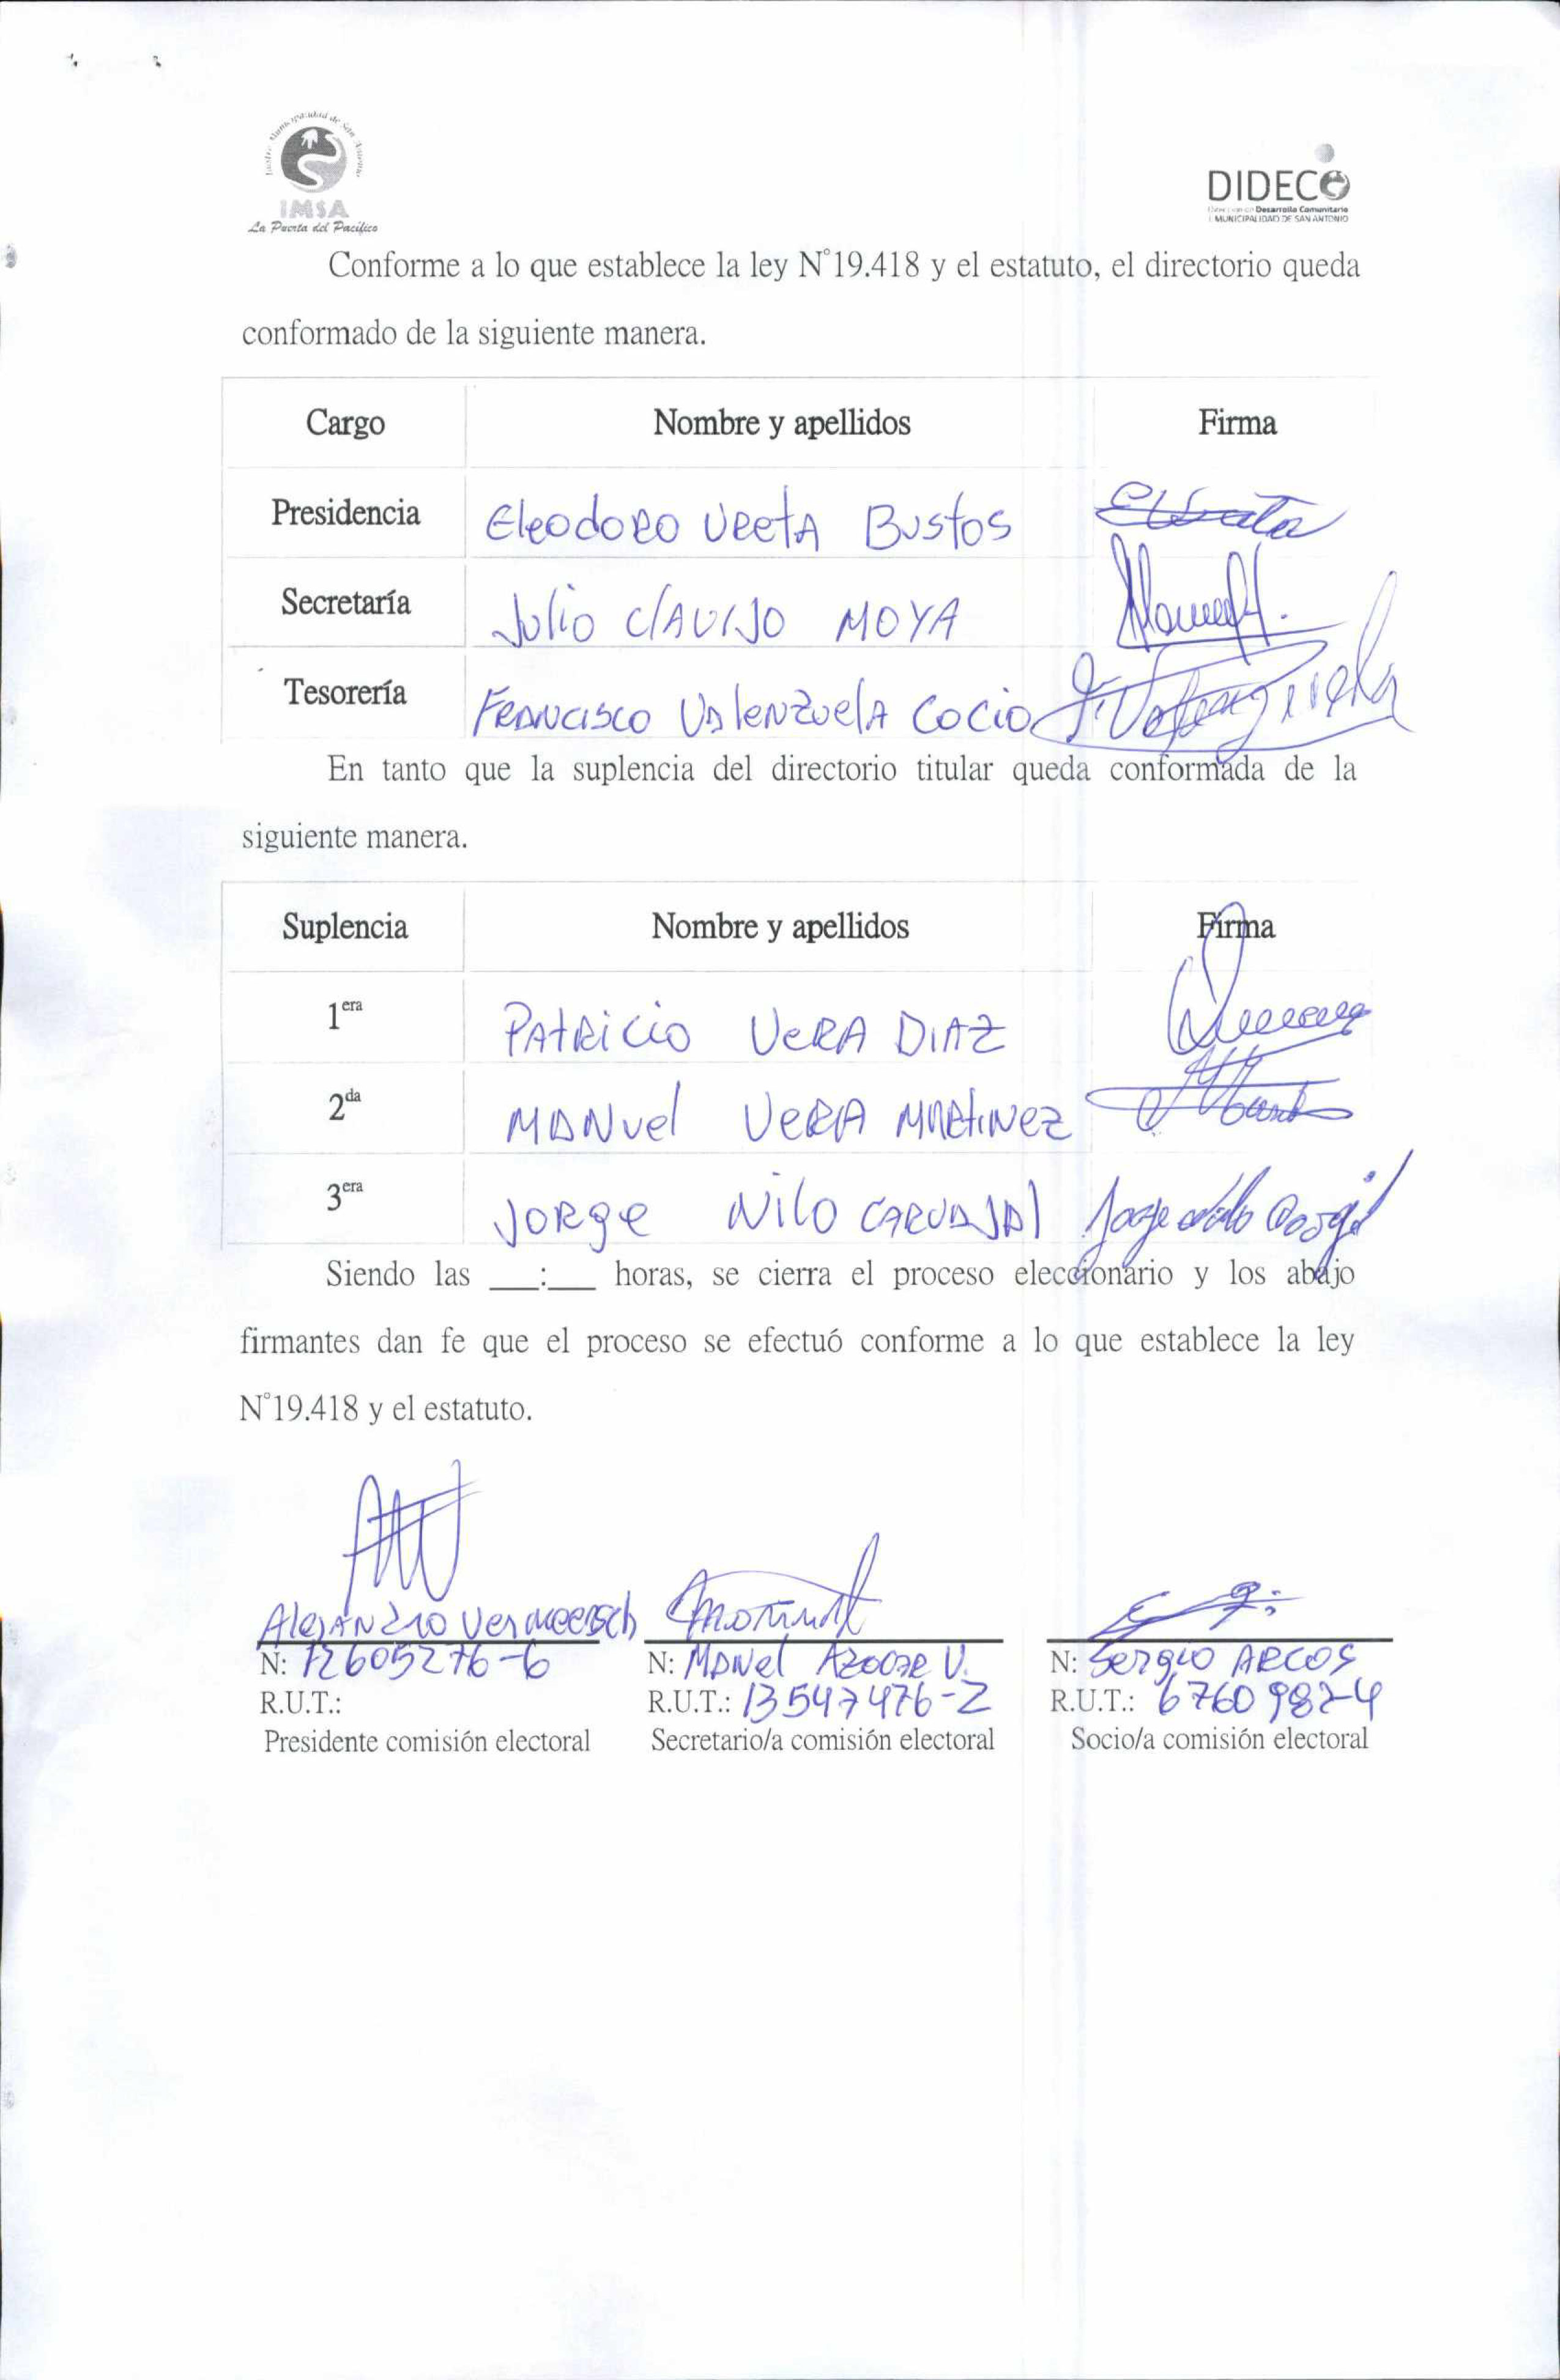 Ilustre Municipalidad de San Antonio
IMSA
La Puerta del Pacífico
DIDECO
Dirección de Desarrollo Comunitario
I. MUNICIPALIDAD DE SAN ANTONIO
Conforme a lo que establece la ley N°19.418 y el estatuto, el directorio queda
conformado de la siguiente manera.
Cargo Nombre y apellidos Firma
Presidencia Eleodoro Ureta Bustos
Secretaría Julio Clavijo Moya
Tesorería Francisco Valenzuela Cocio F. Valenzuela
En tanto que la suplencia del directorio titular queda conformada de la
siguiente manera.
Suplencia Nombre y apellidos Firma
1era Patricio Vera Diaz
2da Manuel Vera Martinez
3era Jorge Nilo Carvajal
Siendo las ___:___ horas, se cierra el proceso eleccionario y los abajo
firmantes dan fe que el proceso se efectuó conforme a lo que establece la ley
N°19.418 y el estatuto.
Alejandro Vermeersch
N: 12605276-6 N: Manuel V. N: Sergio Arcos
R.U.T.: R.U.T.: 13547476-2 R.U.T.: 6760982-4
Presidente comisión electoral Secretario/a comisión electoral Socio/a comisión electoral